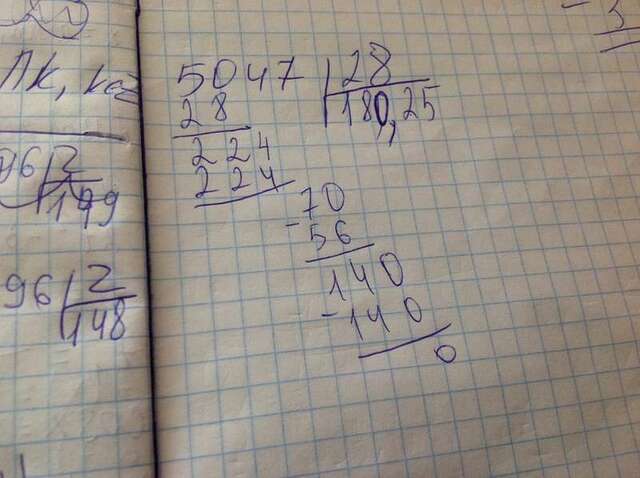 ЛК, ка
96 2
149
96 2
148
5047 28
28 180,25
224
224
70
- 56
140
- 140
0